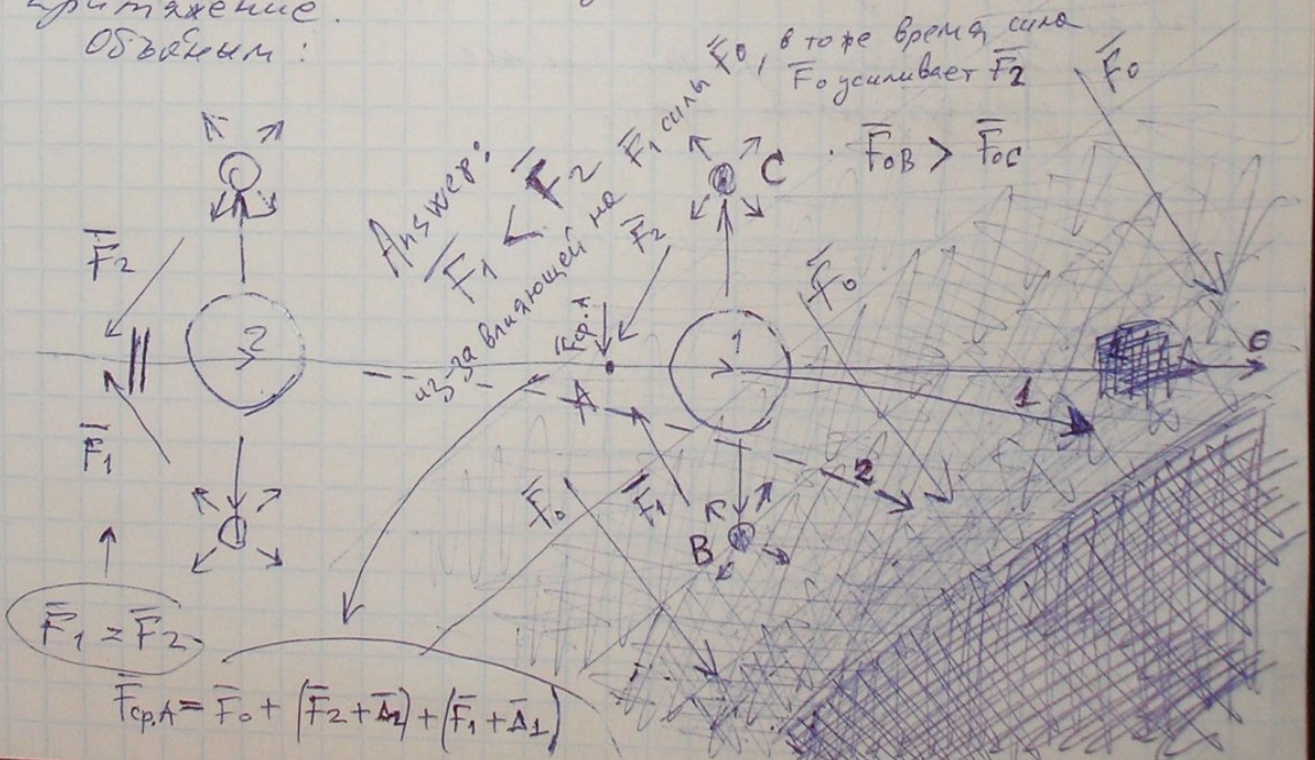 притяжение.
Объясним:
Answer:
F̅1 < F̅2
из-за влияющей на F̅1 силы F̅0, в тоже время сила
F̅0 усиливает F̅2
F̅0B > F̅0C
F̅0
C
F̅2
F̅2
F̅0
F̅ср.A
2
1
0
A
1
2
F̅1
F̅0
F̅1
B
F̅1 = F̅2
F̅ср.A = F̅0 + (F̅2 + Δ̅2) + (F̅1 + Δ̅1)